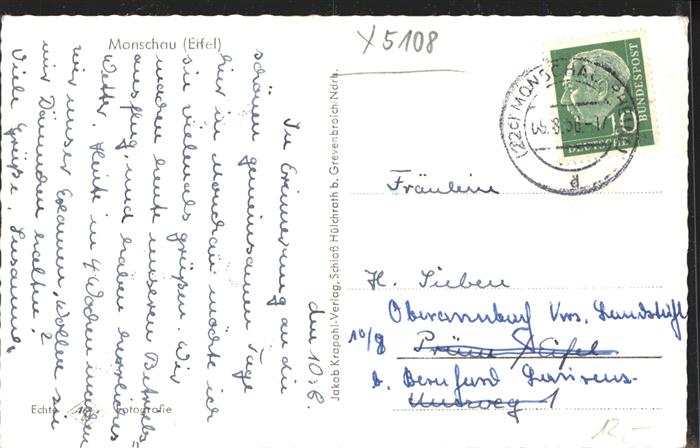 Monschau (Eifel)
X 5108
den 10.8.
In Erinnerung an die
schönen gemeinsamen Tage
hier in Monschau möchte ich
sie vielmals grüßen. Wir
machen heute unseren Betriebs-
ausflug, und haben herrliches
Wetter. Heute in 4 Wochen machen
wir unser Examen, wollen sie
mir Daumen halten?
Viele Grüße Susanne
Echte Fotografie
Jakob Krapohl-Verlag, Schloß Hülchrath b. Grevenbroich Ndrh.
(22c) MONSCHAU
09.8.56.-17
a
10
DEUTSCHE
BUNDESPOST
Fräulein
H. Sieben
10/8
Prüm / Eifel
b. Bernhard Laurens
1
12.-